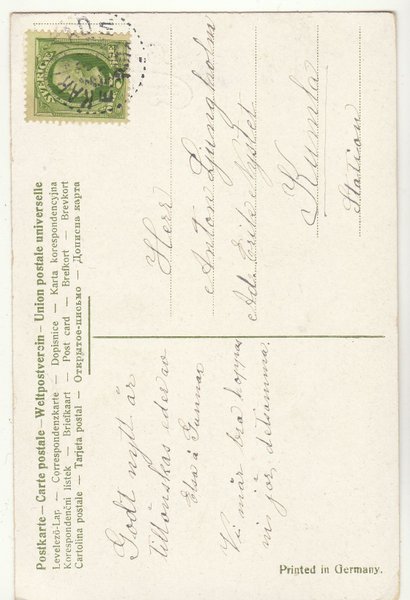 Postkarte — Carte postale — Weltpostverein — Union postale universelle
Levelező-Lap. — Correspondenzkarte — Dopisnice — Karta korespondencyjna
Korespondenční listek — Briefkaart — Post card — Brefkort — Brevkort
Cartolina postale — Tarjeta postal — Открытое-письмо — Дописна карта
SVERIGE
Herr
Anton Ljungholm
Ad. Erik Nyslet
Kumla
Station
Godt nytt år
tillönskas eder av
Elsa å Gunnar
Vi mår bra hoppas
ni gör detsamma.
Printed in Germany.